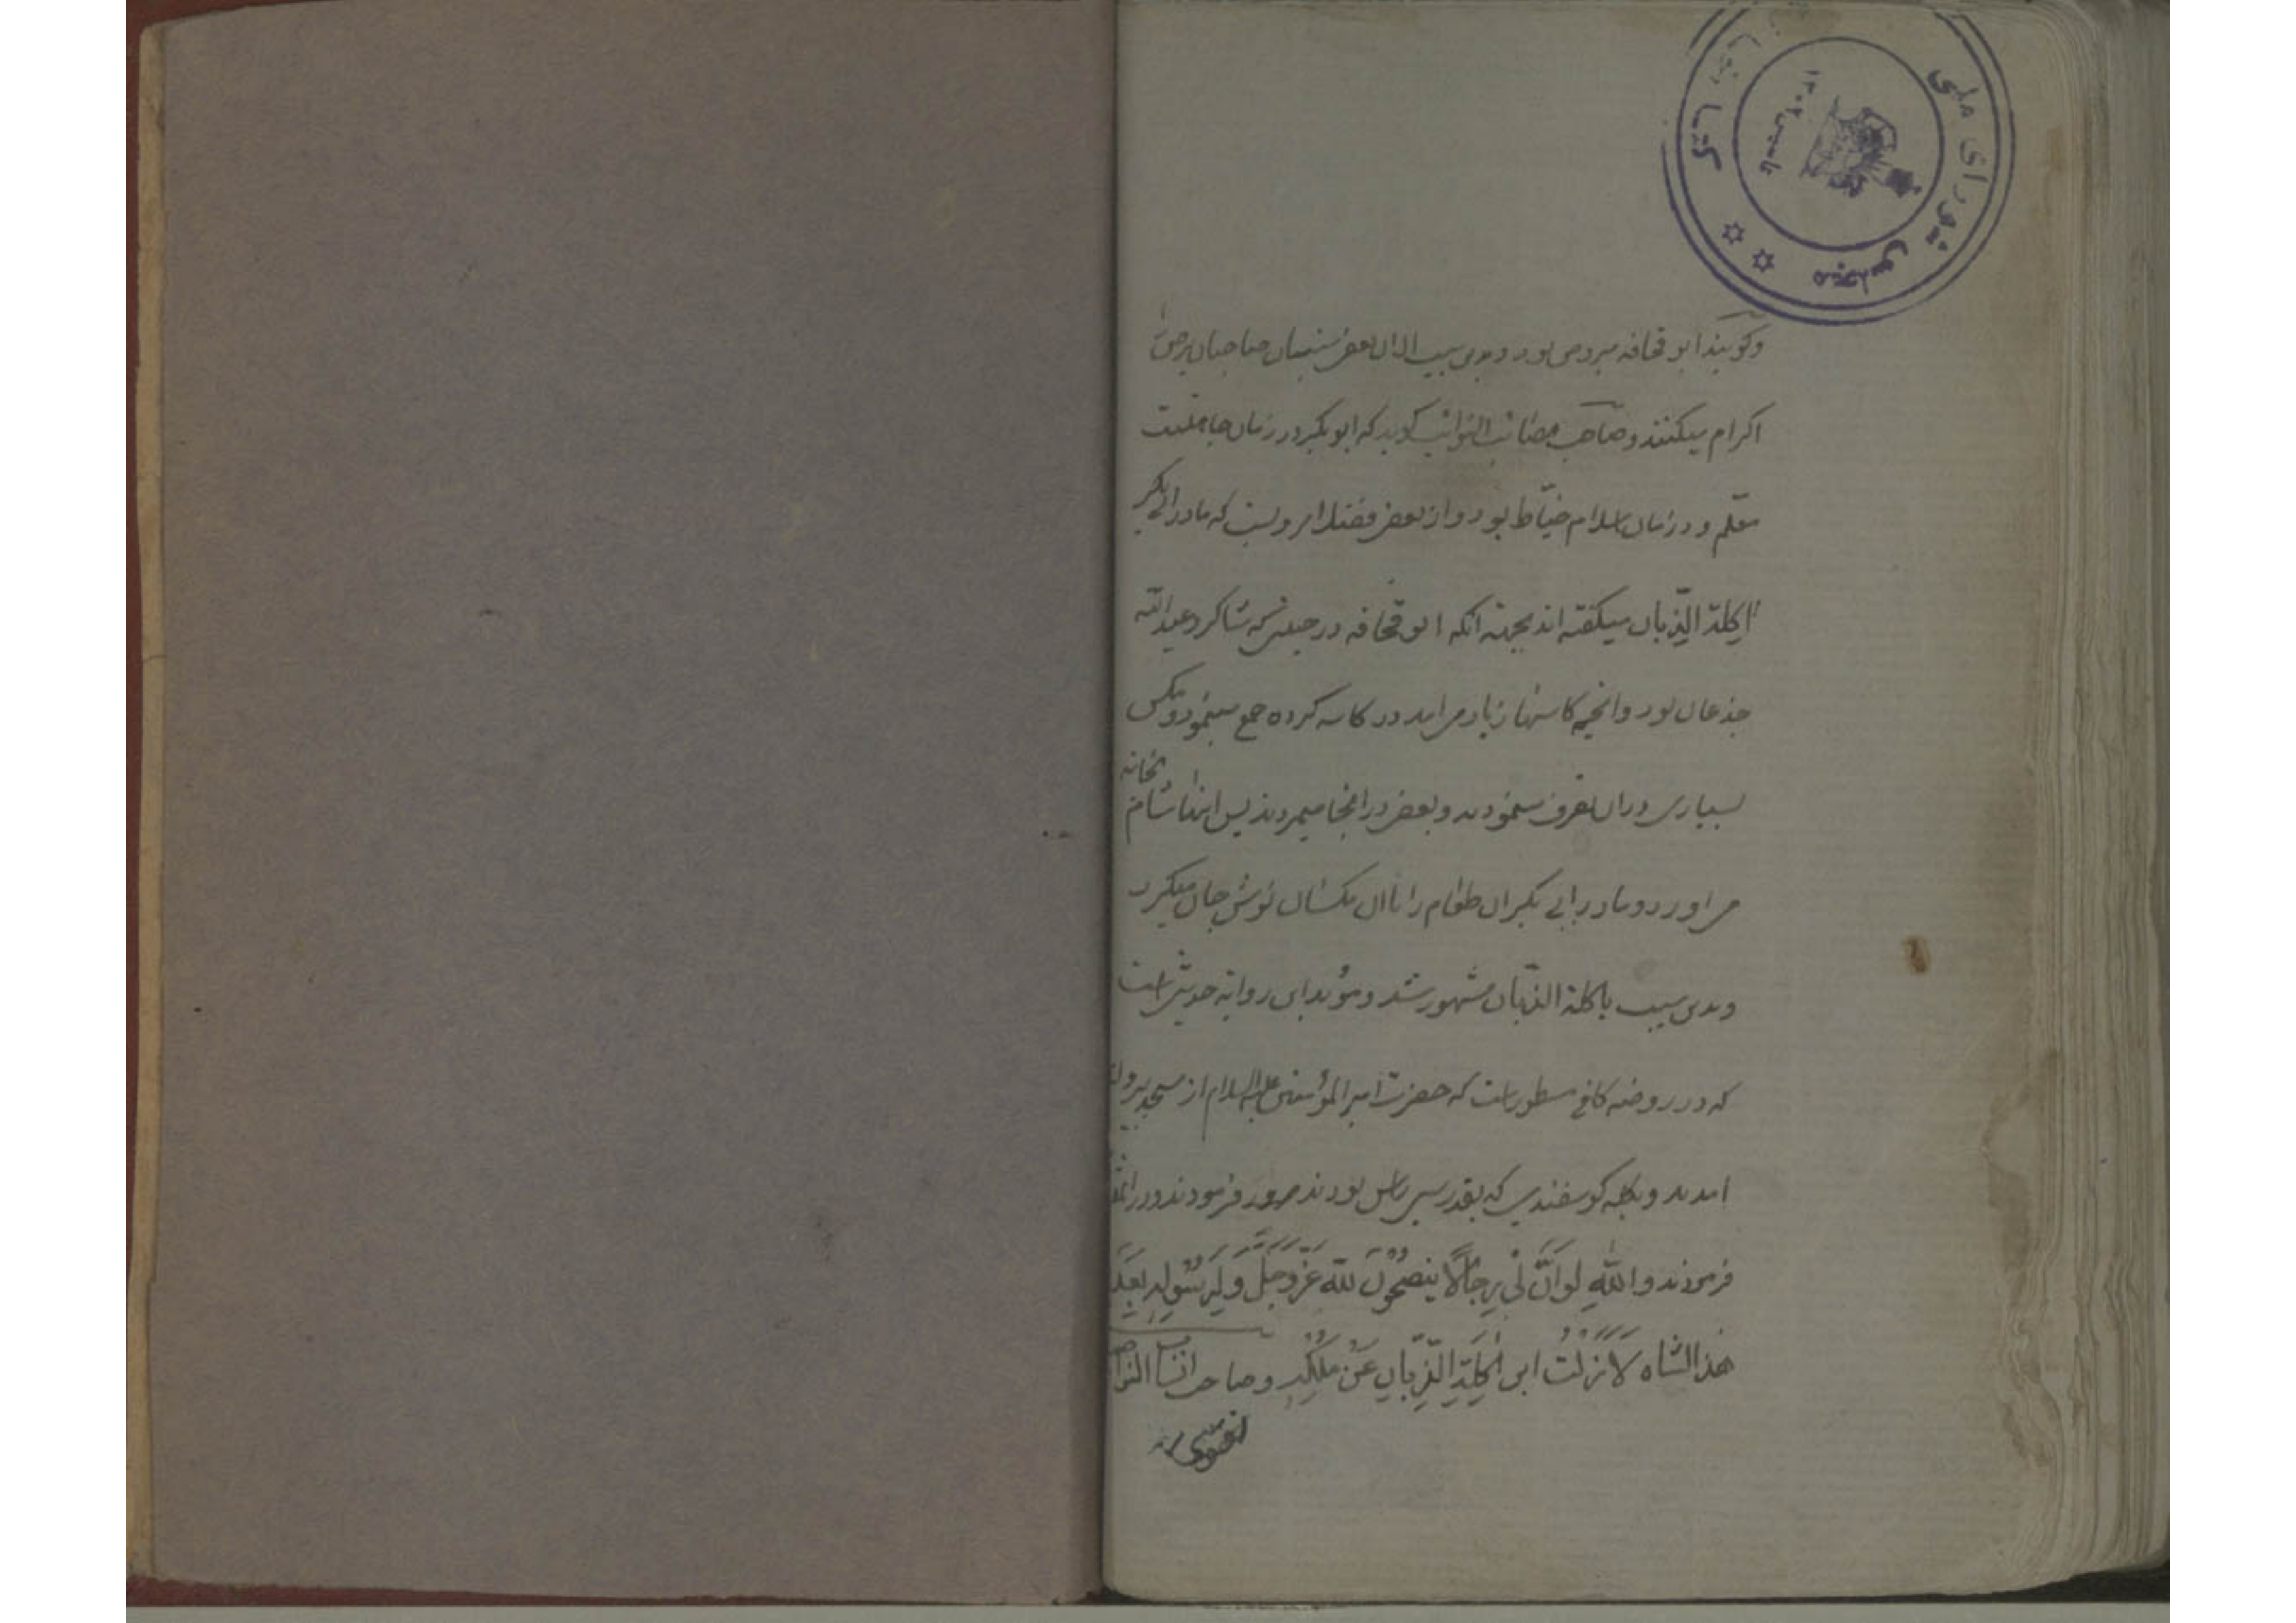 مجلس شورای ملی
وکویند ابو قحافه مبروص بود و بدین سبب الان بعض سنیان صاحبان برص
اکرام میکنند و صاحب مصائب النوائب کوید که ابو بکر در زمان جاهلیت
معلم و در زمان اسلام خیّاط بود و از بعض فضلا مرویست که مادر ابی بکر
اکلة الذّبان میکفته اند بجهته آنکه ابو قحافه در حینی که شاکرد عبدالله
جذعان بود و انچه کاسها زیاد می امد در کاسه کرده جمع مینمود و مکس
بسیاری در ان تصرف مینمودند و بعض در انجا میمردند پس انها شام بخانه
می اورد و مادر ابی بکر ان طعام را با ان مکسان نوش جان میکرد
و بدین سبب باکلة الذبّان مشهور شد و مؤید این روایه حدیثی است
که در روضه کافی مسطور است که حضرت امیر المؤمنین علیه السلام از مسجد بیرون
امدند و بکله کوسفندی که بقدر سی راس بودند مرور فرمودند و در
فرمودند والله لَو اَنَّ لی رِجالًا ینصَحُونَ لله عَزَّوجَلَّ وَلِرَسُولِهِ بِعَدَدِ
هذا الشاه لَاَزَلتُ ابن اٰکِلَةِ الذِّبّانِ عَن مُلکِهِ و صاحب